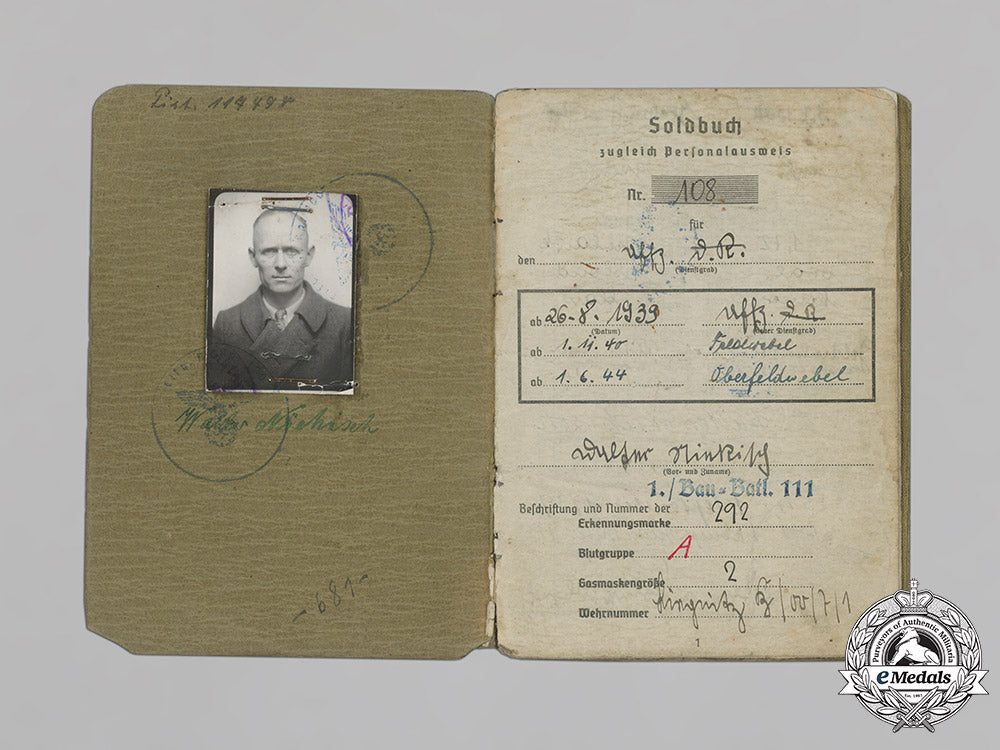 Pist.
- 681 -
Soldbuch
zugleich Personalausweis
Nr. 108
für
den Uffz. d.R.
(Dienstgrad)
ab 26.8.1939 Uffz.
(Datum) (neuer Dienstgrad)
ab 1.11.40 Feldwebel
ab 1.6.44 Oberfeldwebel
Walter Niekisch
(Vor- und Zuname)
1./Bau-Batl. 111
Beschriftung und Nummer der
Erkennungsmarke 292
Blutgruppe A
Gasmaskengröße 2
Wehrnummer Liegnitz
1
Purveyors of Authentic Militaria
eMedals